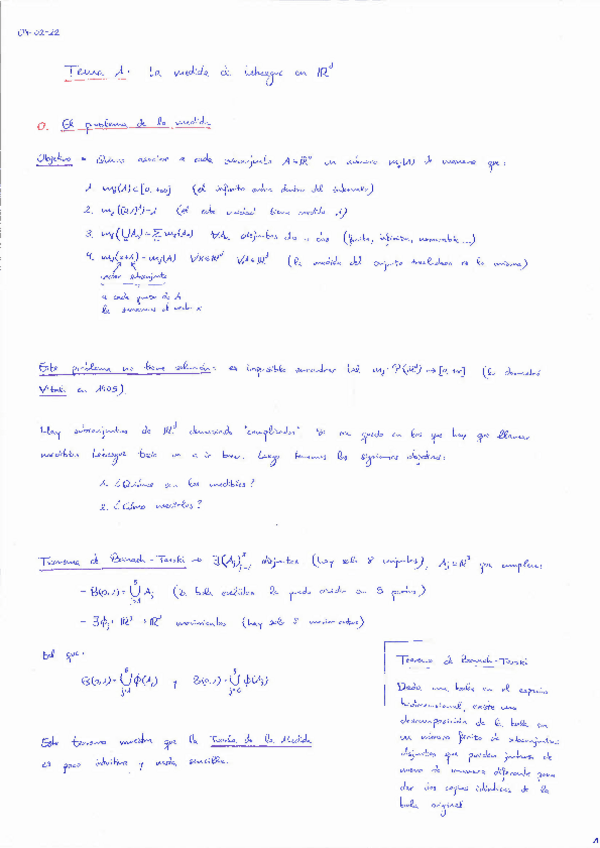 04-02-22
Tema 1. La medida de Lebesgue en ℝᵈ
0. El problema de la medida
Objetivo → Quiero asociar a cada subconjunto A⊂ℝᵈ un número m_d(A) de manera que:
1. m_d(A)∈[0,+∞] (el infinito entra dentro del intervalo)
2. m_d([0,1]ᵈ)=1 (el cubo unidad tiene medida 1)
3. m_d(⋃A_n)=∑m_d(A_n) ∀A_n disjuntos dos a dos (finito, infinito, numerable...)
4. m_d(x+A)=m_d(A) ∀x∈ℝᵈ ∀A⊂ℝᵈ (la medida del conjunto trasladado es la misma)
vector subconjunto
a cada punto de A
le sumamos el vector x
Este problema no tiene solución: es imposible encontrar tal m_d: P(ℝᵈ)→[0,+∞] (lo demostró
Vitali en 1905).
Hay subconjuntos de ℝᵈ demasiado "complicados". Yo me quedo con los que hay que llamar
medibles Lebesgue
Luego tenemos los siguientes objetivos:
1. ¿Quiénes son los medibles?
2. ¿Cómo medirlos?
Teorema de Banach-Tarski → ∃(A_j)⁸_{j=1} disjuntos (hay solo 8 conjuntos), A_j⊂ℝ³ que cumplen:
- B(0,1)=⋃⁸_{j=1} A_j (la bola euclídea la puedo dividir en 8 partes)
- ∃ϕ_j: ℝ³→ℝ³ movimientos (hay solo 8 movimientos)
tal que:
y
Este teorema muestra que la Teoría de la Medida
es poco intuitiva y nada sencilla.
Teorema de Banach-Tarski
Dada una bola en el espacio
tridimensional, existe una
descomposición de la bola en
un número finito de subconjuntos
disjuntos que pueden juntarse de
nuevo de manera diferente para
dar dos copias idénticas de la
bola original
1